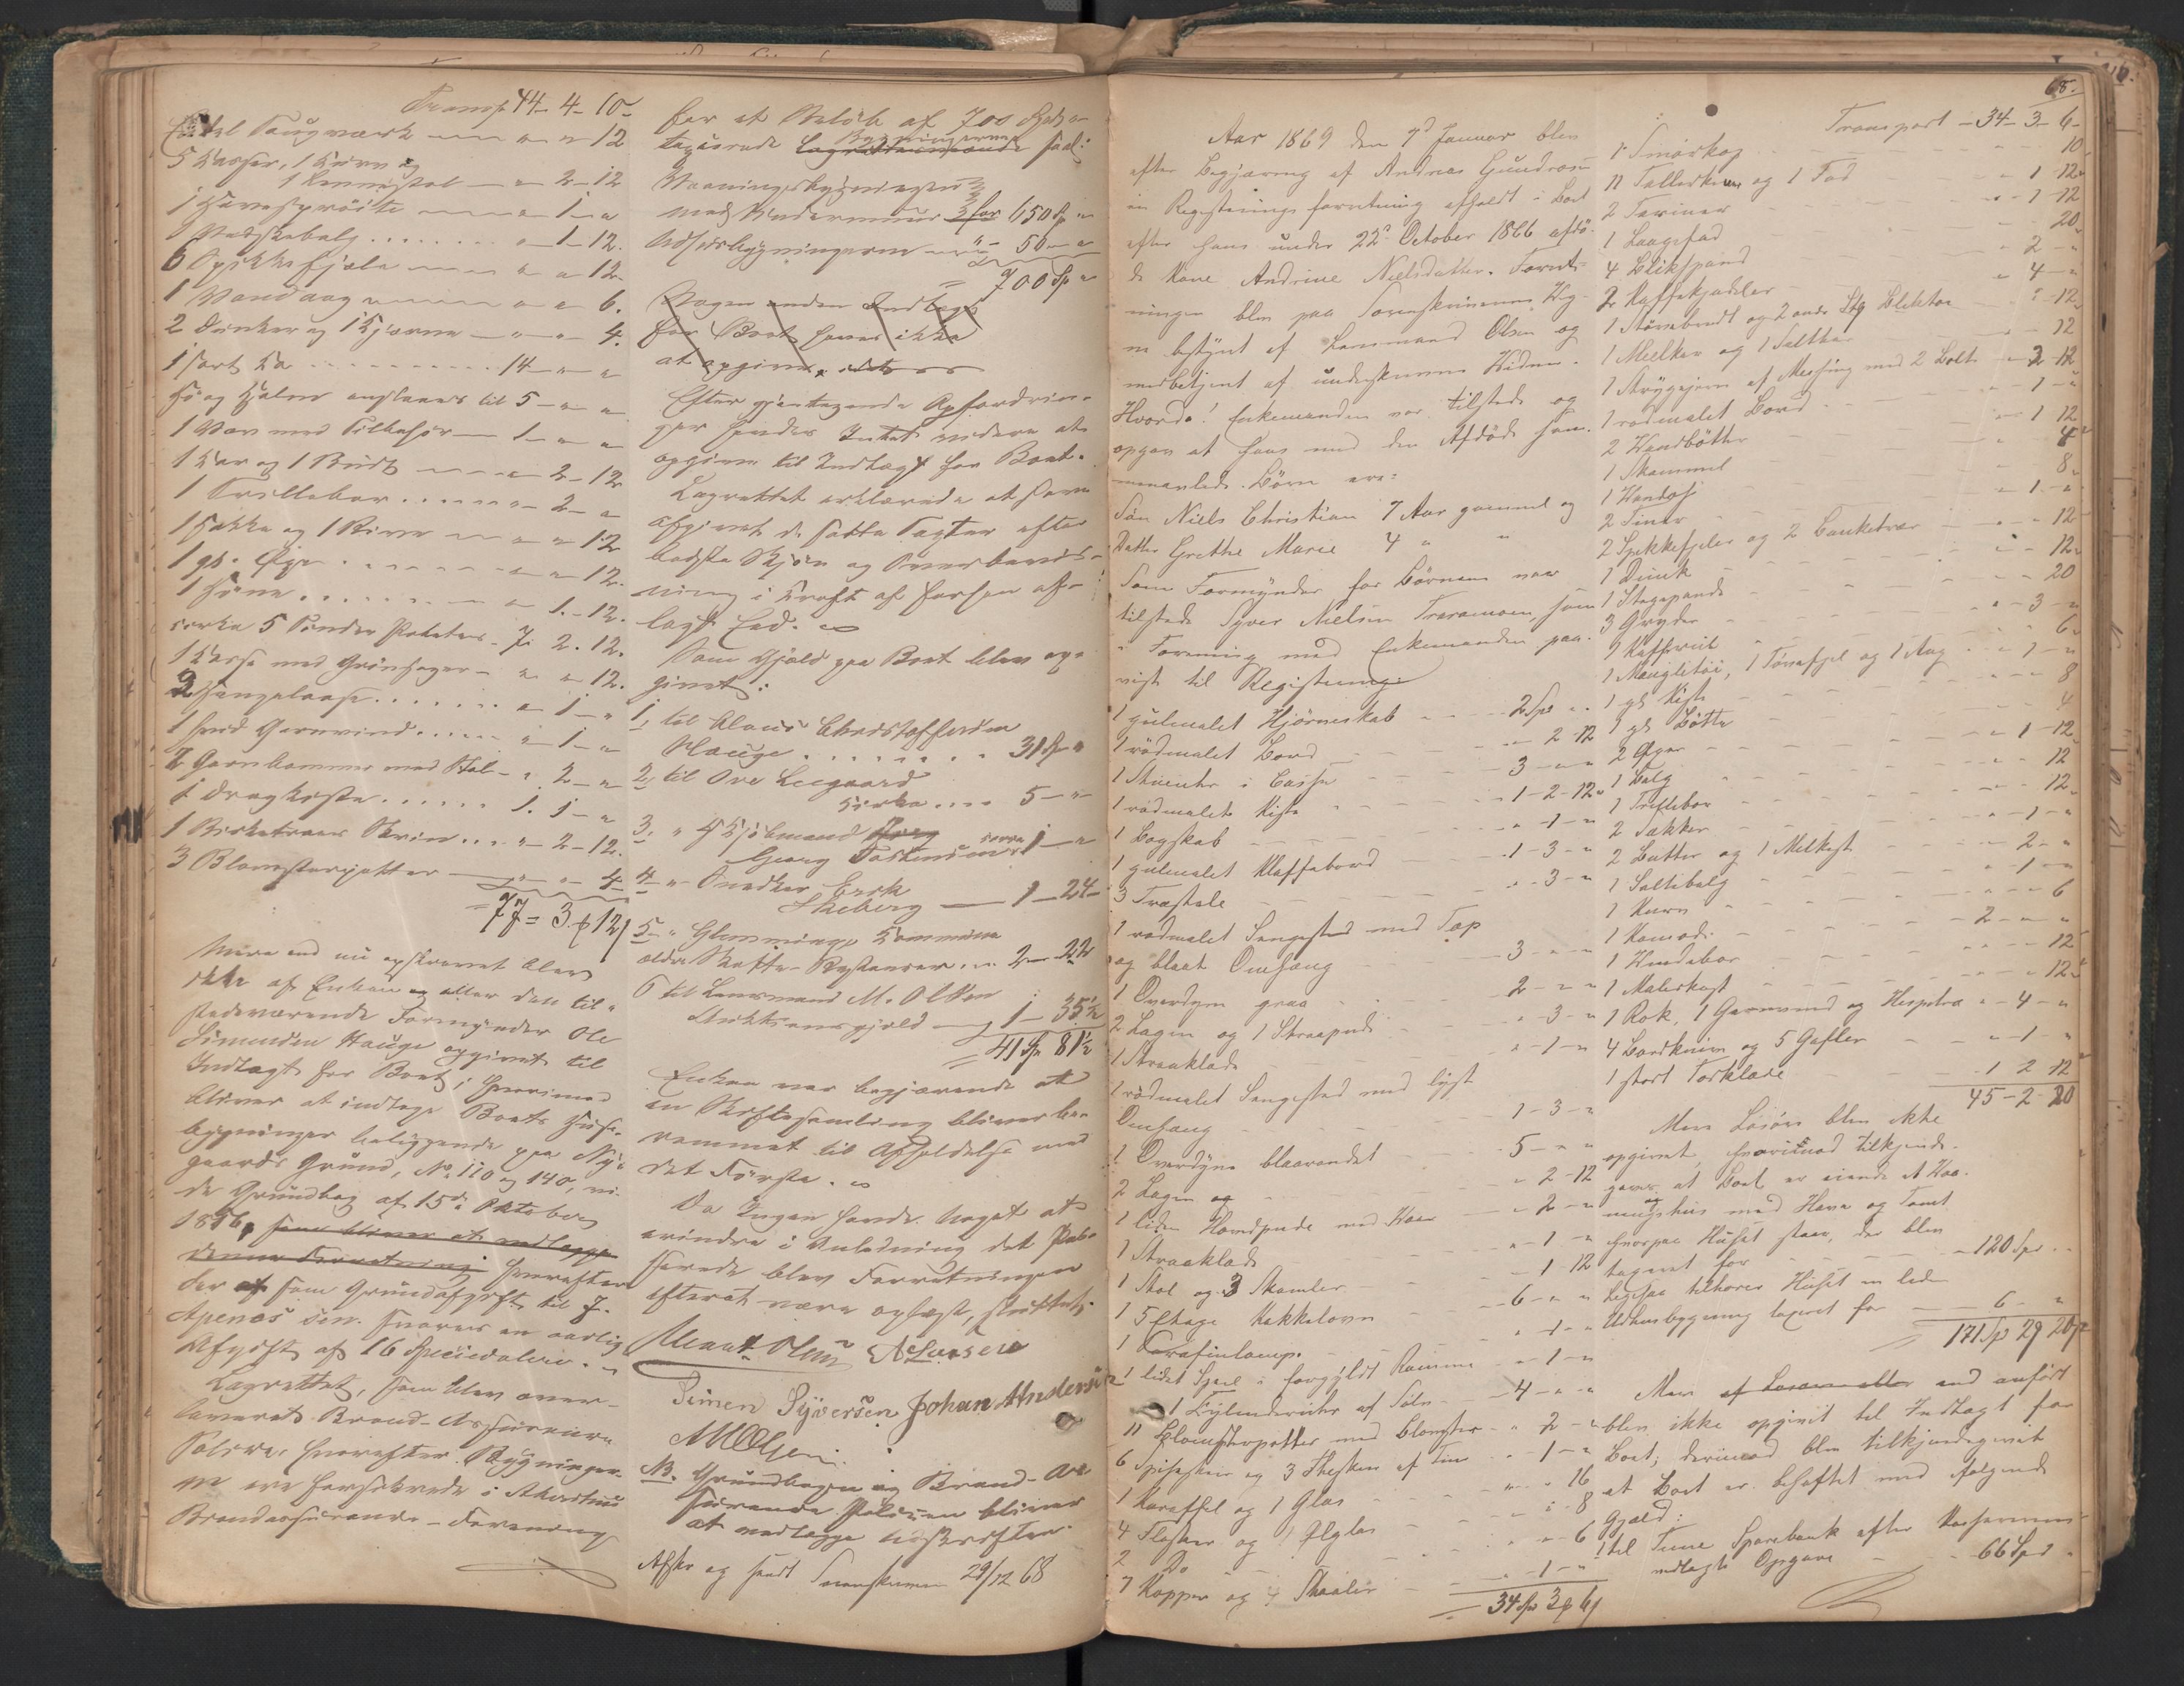 Transp. 44 - 4 - 10
Endel Taugværk - - - 12
5 Kasser, 1 Kurv og
1 Rammestol - - 2 - 12
1 Havesprøite - - 1 - "
1 Vadskebalg - 1 - 12.
6 Spekkefjele - - - 12
1 Vandaag - - - 6.
2 Dunker og 1 Kjærne - - - 4.
1 sort Ko 14 - " - "
Hø og Halm anslaaes til 5 - " - "
1 Væv med Tilbehør - 1 - " - "
1 Kar og 1 Bøtte - - 2 - 12
1 Trillebør - 2 - "
1 Hakke og 1 Rive - - - 12
1 gl. Øxe - - 12.
1 Høne - 1 - 12.
circa 5 Tønder Poteter - 7. 2. 12.
1 Kasse med Grønsager - " - 12.
2 Hængelaase - 1 - "
1 Garnvind - 1 - "
2 Garnkammer med Stol - 2 - "
1 Dragkiste 1. 1 - "
1 Birketræes Skrin - 2 - 12.
3 Blomsterpotter - - - 4
= 77 = 3 ₰ 12
Mere end nu opskrevet blev
ikke af Enken eller den til-
stedeværende Formynder Ole
Simensen Hauge opgivet til
Indtægt for Boet; hvorimod
bliver at indtage Boets Huse-
bygninger beliggende paa Ny-
gaards Grund, No 110 og 140,
de Grundbog af 15de Oktober
1856, som bliver at vedlægge
denne Forretning hvorefter
der af som Grundafgift til J.
Apenæs sen. svares en aarlig
Afgift af 16 Speciedaler. -
Lagrettet, som blev over-
leveret Brand-Assurance
Police, hvorefter Bygninger-
ne ere forsikrede i Akershuus
Brandassurance-Forening
for et Beløb af 700 Spd
taxerede Lagrettesmænd Bygningerne saal:
Vaaningsbygningen
med Kjeldermuur for 650 Sp "
Udhusbygningerne - 50 - "
= 700 Sp "
Nogen anden Indtægt
for Boet haves ikke
at opgive
Efter gjentagende Opfordrin-
ger havdes Intet videre at
opgive til Indtægt for Boet.
Lagrettet erklærede at have
afgivet de satte Taxter efter
bedste Skjøn og Overbeviis-
ning i Kraft af forhen af-
lagt Eed. -
Som Gjæld paa Boet blev op-
givet:
1, til Claus Christoffersen
Hauge 31 Sp "
2, til Ove Leegaard
circa 5 - "
3, " Kjøbmand
Georg Torkildsen circa 1 - "
4, " Snedker Erik
Skeberg - 1 - 24 -
5, " Glemminge Kommune
ældre Skatte-Restancer 2 - 22
6 til Lensmand M. Olsen
Auktionsgjæld - 1 - 35½
= 41 Sp 81½
Enken var begjærende at
en Skiftesamling bliver be-
rammet til Afholdelse med
det Første. -
Da Ingen havde Noget at
erindre i Anledning det Pas-
serede blev Forretningen
efterat være oplæst, sluttet.
Simen Syversen Johan Andersen
M Olsen
NB. Grundbogen og Brand-As-
surance Policen bliver
at vedlægge Udskriften.
Afskr og sendt Sorenskriveren 29/12 68
68.
Aar 1869 den 7d Januar blev
efter Begjæring af Andreas Gundersen
en Registrerings forretning afholdt i Boet
efter hans under 22d October 1866 afdø-
de Kone Andrine Nielsdatter. Forret-
ningen blev paa Sorenskriverens Veg-
ne bestyret af Lensmand Olsen og
medbetjent af underskrevne Vidner.
Hvorda! Enkemanden var tilstede og
opgav at hans med den Afdøde sam-
menavlede Børn ere:
Søn Niels Christian 7 Aar gammel og
Datter Grethe Marie 4 " "
Som Formynder for Børnene var
tilstede Syver Nielsen Traramoen, som
i Forening med Enkemanden paa-
viste til Registrering:
1 gulmalet Hjørneskab - - 2 Spd " "
1 rødmalet Bord - " - 2 - 12
1 Stueuhr i Casse - 3 - " - "
1 rødmalet Kiste - 1 - 2 - 12
1 Bogskab - " - 1 - "
1 gulmalet Klaffebord - 1 - 3 - "
3 Træstole - " - 3 - "
1 rødmalet Sengested med Top
og blaat Omhæng - 3 - " - "
1 Overdyne graa - 2 - " - "
2 Lagen og 1 Straapude - " - 3 - "
1 Straaklæde - " - 1 - "
1 rødmalet Sengested med lyst
Omhæng - 1 - 3 - "
1 Overdyne blaarandet - 5 - " - "
2 Lagen - " 2 - 12
1 liden Hovedpude med Vaar - " - 2 - "
1 Straaklæde - " - 1 - "
1 Stol og 3 Skamler - 1 - 12
1 5 Etage Kakkelovn - 6 - " - "
1 Parafinlampe - " - 1 - "
1 lidet Speil i forgyldt Ramme - " - 1 - "
1 Cylinderuhr af Sølv - 4 - " - "
11 Blomsterpotter med Blomster - " 2 - "
6 Spiseskeer og 3 Theskeer af Tin - " - 1 - "
1 Karaffel og 1 Glas - " - " - 16
4 Flasker og 1 Ølglas - " - " - 8
2 Do - " - " 6
7 Kopper og 4 Skaaler - " - 1 - "
= 34 Spd 3 ₰ 6
Transport - 34 - 3 - 6 -
1 Smørkop - 10
11 Tallerkener og 1 Fad - 1 - 12
2 Teriner - 1 - 12
1 Laagefad - 20
4 Blikspand - 2 - "
2 Kaffekjedeler - 4 - "
1 Størrebrødt og 2 andre Stg Bliktøi - 12
1 Melker og 1 Saltkar - 12
1 Strygejern af Messing med 2 Bolte - 2 - 12
1 rødmalet Bord - 1 - "
2 Vandbøtter - 1 12
1 Skammel - 4
1 Vandøse - 8
2 Tiner - 1 - "
2 Spekkefjeler og 2 Banketrær - 12
1 Dunk - 12
1 Stegepande - 20
3 Gryder - 3 - "
1 Kaffevri - 6
1 Mangletøi, 1 Tørrefjel og 1 Aag - 1 - "
1 gl. Kiste - 8
1 gl. Bøtte - 4
2 Øxer - 1 - 12
1 Balg - 12
1 Trillebør - 12
2 Sækker - 1 - "
2 Bøtter og 1 Melkest - 2 - "
1 Saltebalg - 1 - "
1 Kurv - 6
1 Komode - 2 - " - "
1 Vandebør - 12
1 Malerkost - 12
1 Rok, 1 Garnvind og Hespetræ - 4 - "
4 Bordknive og 5 Gafler - 1 - "
1 stort Tørklæde - 1 2 12
45 - 2 - 20
Mere Løsøre blev ikke
opgivet, hvorimod tilkjende-
gaves at Boet er eiende et Vaa-
ningshus med Have og Tomt
hvorpaa Huset staar, der blev
taxeret for - 120 Spd "
Ligesaa tilhører Huset en liden
Udhusbygning taxeret for - 6 - "
171 Sp 2 ₰ 20 s
Mere af Løsøre eller end anført
blev ikke opgivet til Indtægt for
Boet; derimod blev tilkjendegivet
at Boet er behæftet med følgende
Gjæld:
1 til Tune Sparebank efter Kasserernes
vedlagte Opgave - 66 Spd "